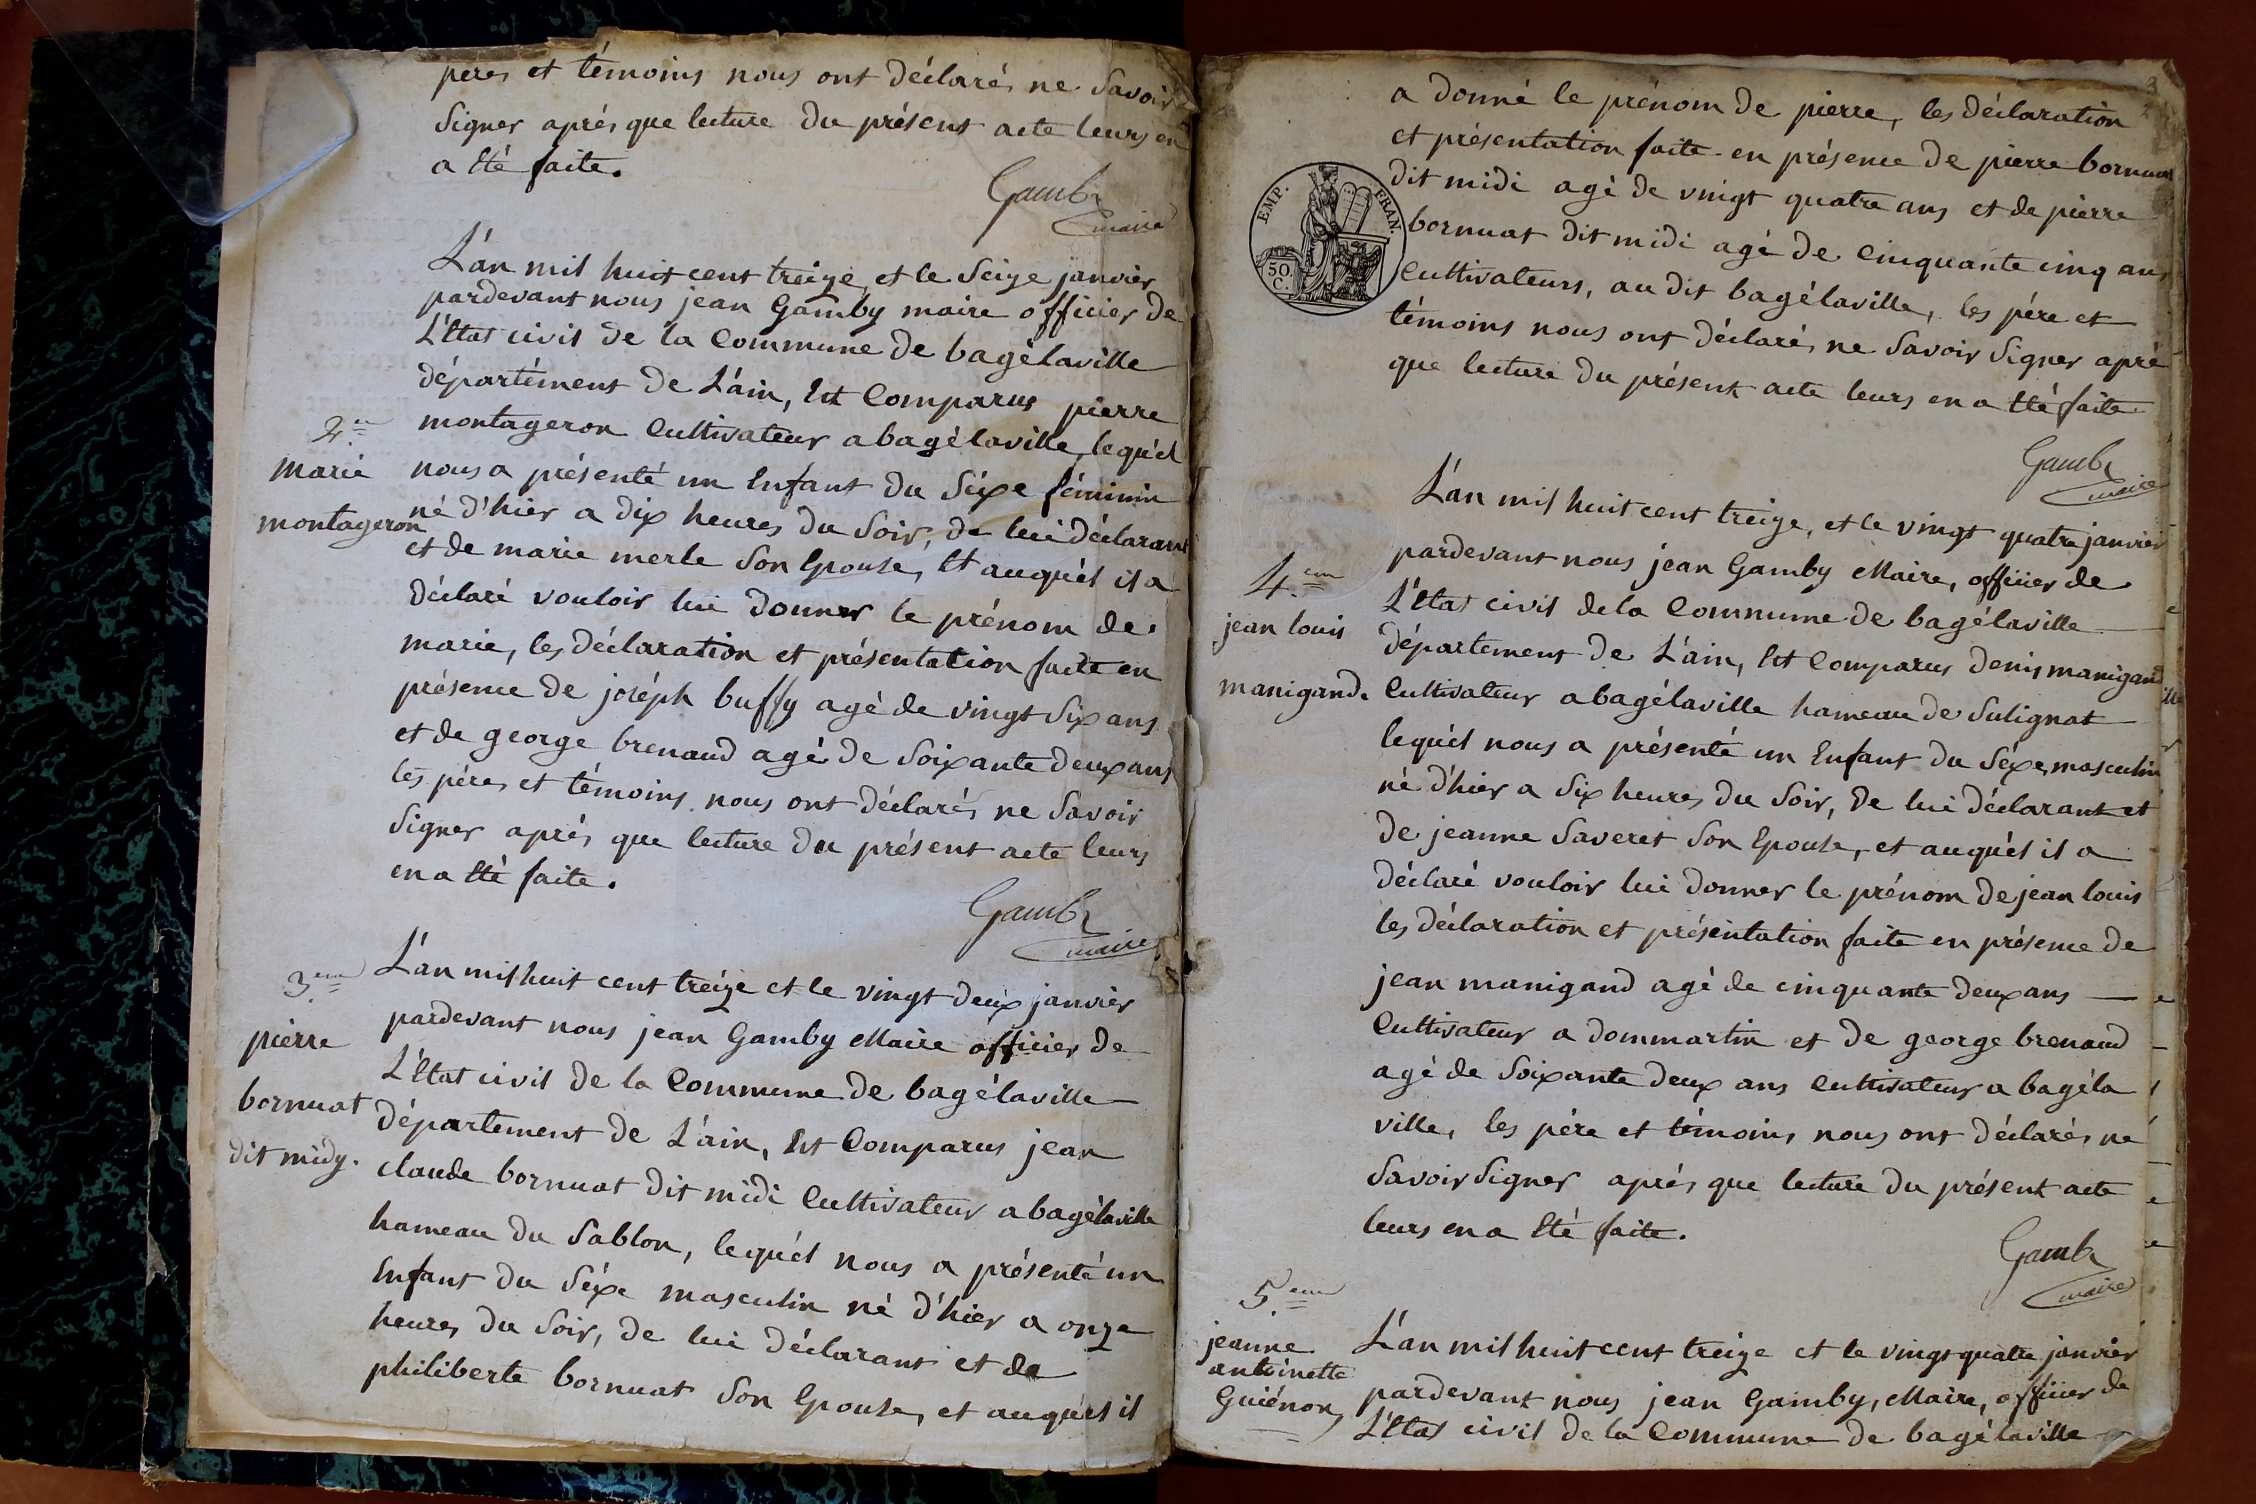 peres et témoins nous ont déclarés ne Savoir
Signer aprés que lecture du présent acte leurs en
a Eté faite.
Gamby
maire
L'an mil huit cent treize, et le Seize janvier
pardevant nous jean Gamby maire officier de
L'Etat civil de la Commune de bagélaville
département de L'ain, Est Comparus pierre
montageron Cultivateur a bagélaville, lequél
nous a présenté un Enfant du Séxe féminin
né d'hier a dix heures du Soir, de lui déclarant
et de marie merle Son Epouse, Et auquél il a
déclaré vouloir lui donner le prénom de
marie, les déclaration et présentation faite en
présence de joséph buffy agé de vingt Six ans
et de george brenaud agé de Soixante deux ans
les pére, et témoins nous ont déclarés ne Savoir
Signer aprés que lecture du présent acte leurs
en a Eté faite.
Gamby
maire
2.em
marie
montageron
L'an mil huit cent treize et le vingt deux janvier
pardevant nous jean Gamby Maire officier de
L'Etat civil de la Commune de bagélaville
département de L'ain, Est Comparus jean
claude bornuat dit midi Cultivateur a bagélaville
hameau du Sablon, lequél nous a présenté un
Enfant du Séxe masculin né d'hier a onze
heures du Soir, de lui déclarant et de
philiberte bornuat Son Epouse, et auquél il
3.em
pierre
bornuat
dit midy.
a donné le prénom de pierre, les déclaration
et présentation faite en présence de pierre bornuat
dit midi agé de vingt quatre ans et de pierre
bornuat dit midi agé de Cinquante cinq ans
Cultivateurs, au dit bagélaville, les pére et
témoins nous ont déclarés ne Savoir Signer aprés
que lecture du présent acte leurs en a Eté faite
EMP. FRAN.
50.
C.
Gamby
maire
L'an mil huit cent treize, et le vingt quatre janvier
pardevant nous jean Gamby Maire, officier de
L'Etat civil de la Commune de bagélaville
département de L'ain, Est Comparus denis manigand
Cultivateur a bagélaville hameau de Sulignat
lequél nous a présenté un Enfant du Séxe masculin
né d'hier a Six heures du Soir, de lui déclarant et
de jeanne Saveret Son Epouse, et auquél il a
déclaré vouloir lui donner le prénom de jean louis
les déclaration et présentation faite en présence de
jean manigand agé de cinquante deux ans
Cultivateur a dommartin et de george brenaud
agé de Soixante deux ans Cultivateur a bagéla
ville, les pére et témoins nous ont déclarés ne
Savoir Signer aprés que lecture du présent acte
leurs en a Eté faite.
Gamby
maire
4.em
jean louis
manigand.
5.em
jeanne
antoinette
Guiénon
L'an mil huit cent treize et le vingt quatre janvier
pardevant nous jean Gamby, Maire, officier de
L'Etat civil de la Commune de bagélaville